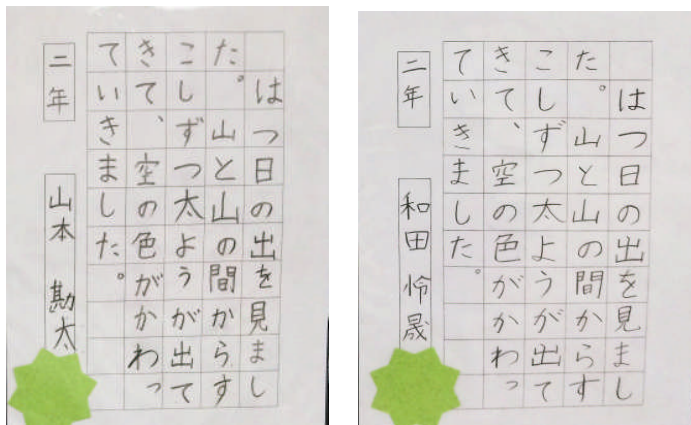 はつ日の出を見まし
た。山と山の間からす
こしずつ太ようが出て
きて、空の色がかわっ
ていきました。
二年 山本 勘太
はつ日の出を見まし
た。山と山の間からす
こしずつ太ようが出て
きて、空の色がかわっ
ていきました。
二年 和田 怜晟